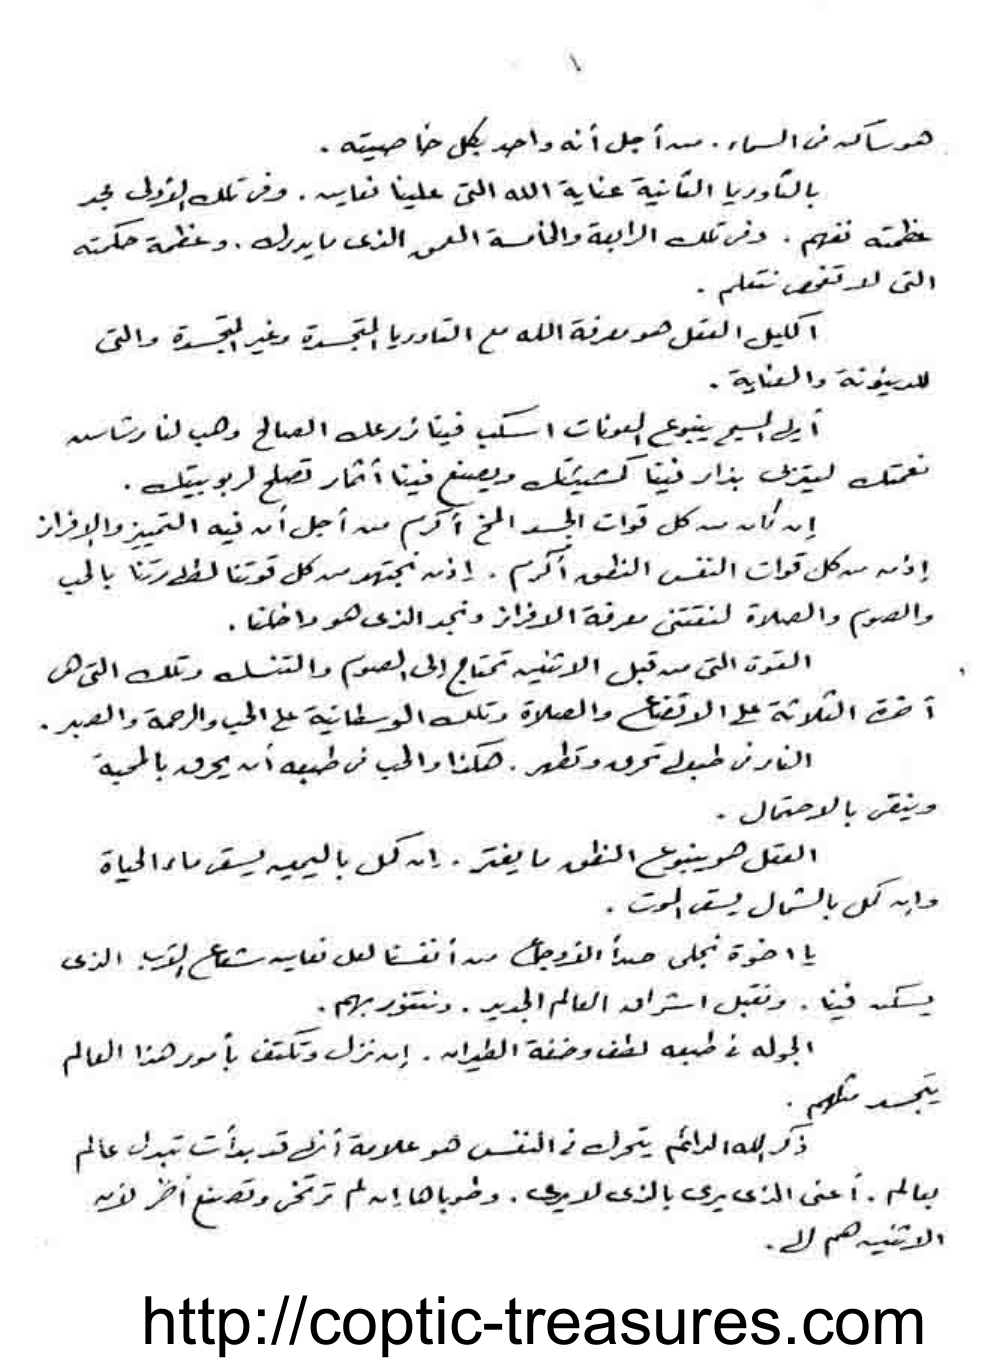 ١
هو ساكن في السماء . من أجل أنه واحد بكل خاصيته .
بالثاوريا الثانية عناية الله التي علينا نعاين . وفي تلك الأولى مجد
عظمته نفهم . وفي تلك الرابعة والخامسة العمق الذي ما يدرك . وعظمة حكمته
التي لا تفحص نتعلم .
اكليل العقل هو معرفة الله مع الثاوريا المتجسدة وغير المتجسدة والتي
للدينونة والعناية .
أيها المسيح ينبوع المعونات اسكب فينا زرعك الصالح وهب لنا رشاش
نعمتك ليتربى بذار فينا كمشيئتك ويصنع فينا أثمار تصلح لربوبيتك .
إن كان من كل قوات الجسد المخ أكرم من أجل أن فيه التمييز والإفراز
إذن من كل قوات النفس النطق أكرم . إذن نجتهد من كل قوتنا لطهارتنا بالحب
والصوم والصلاة لنقتني معرفة الافراز ونجد الذي هو داخلنا .
القوة التي من قبل الاثنين تحتاج إلى الصوم والتنسك وتلك التي هي
آخرة الثلاثة على الاتضاع والصلاة وتلك الوسطانية على الحب والرحمة والصبر .
النار في طبعها تحرق وتطهر . هكذا والحب في طبعه أن يحرق بالمحبة
وينقي بالاحتمال .
العقل هو ينبوع النطق ما يفتر . إن كمل باليمين يسقى ماء الحياة
وإن كمل بالشمال يسقى الموت .
يا اخوة نجلى صدأ الأوجاع من أنفسنا لعل نعاين شعاع الرب الذي
يسكن فينا . ونقبل اشراق العالم الجديد . ونتنور بهم .
الجوله في طبعه لطف وخفة الطيران . إن نزل وتكثف بأمور هذا العالم
يتجسد مثلهم .
ذكر الله الدائم يتحرك في النفس هو علامة أنها قد بدأت تبدل عالم
بعالم . أعني الذي يرى بالذي لا يرى . وطوباها إن لم ترتخي وتصنع آخر لأن
الاثنين هم لها .
http://coptic-treasures.com